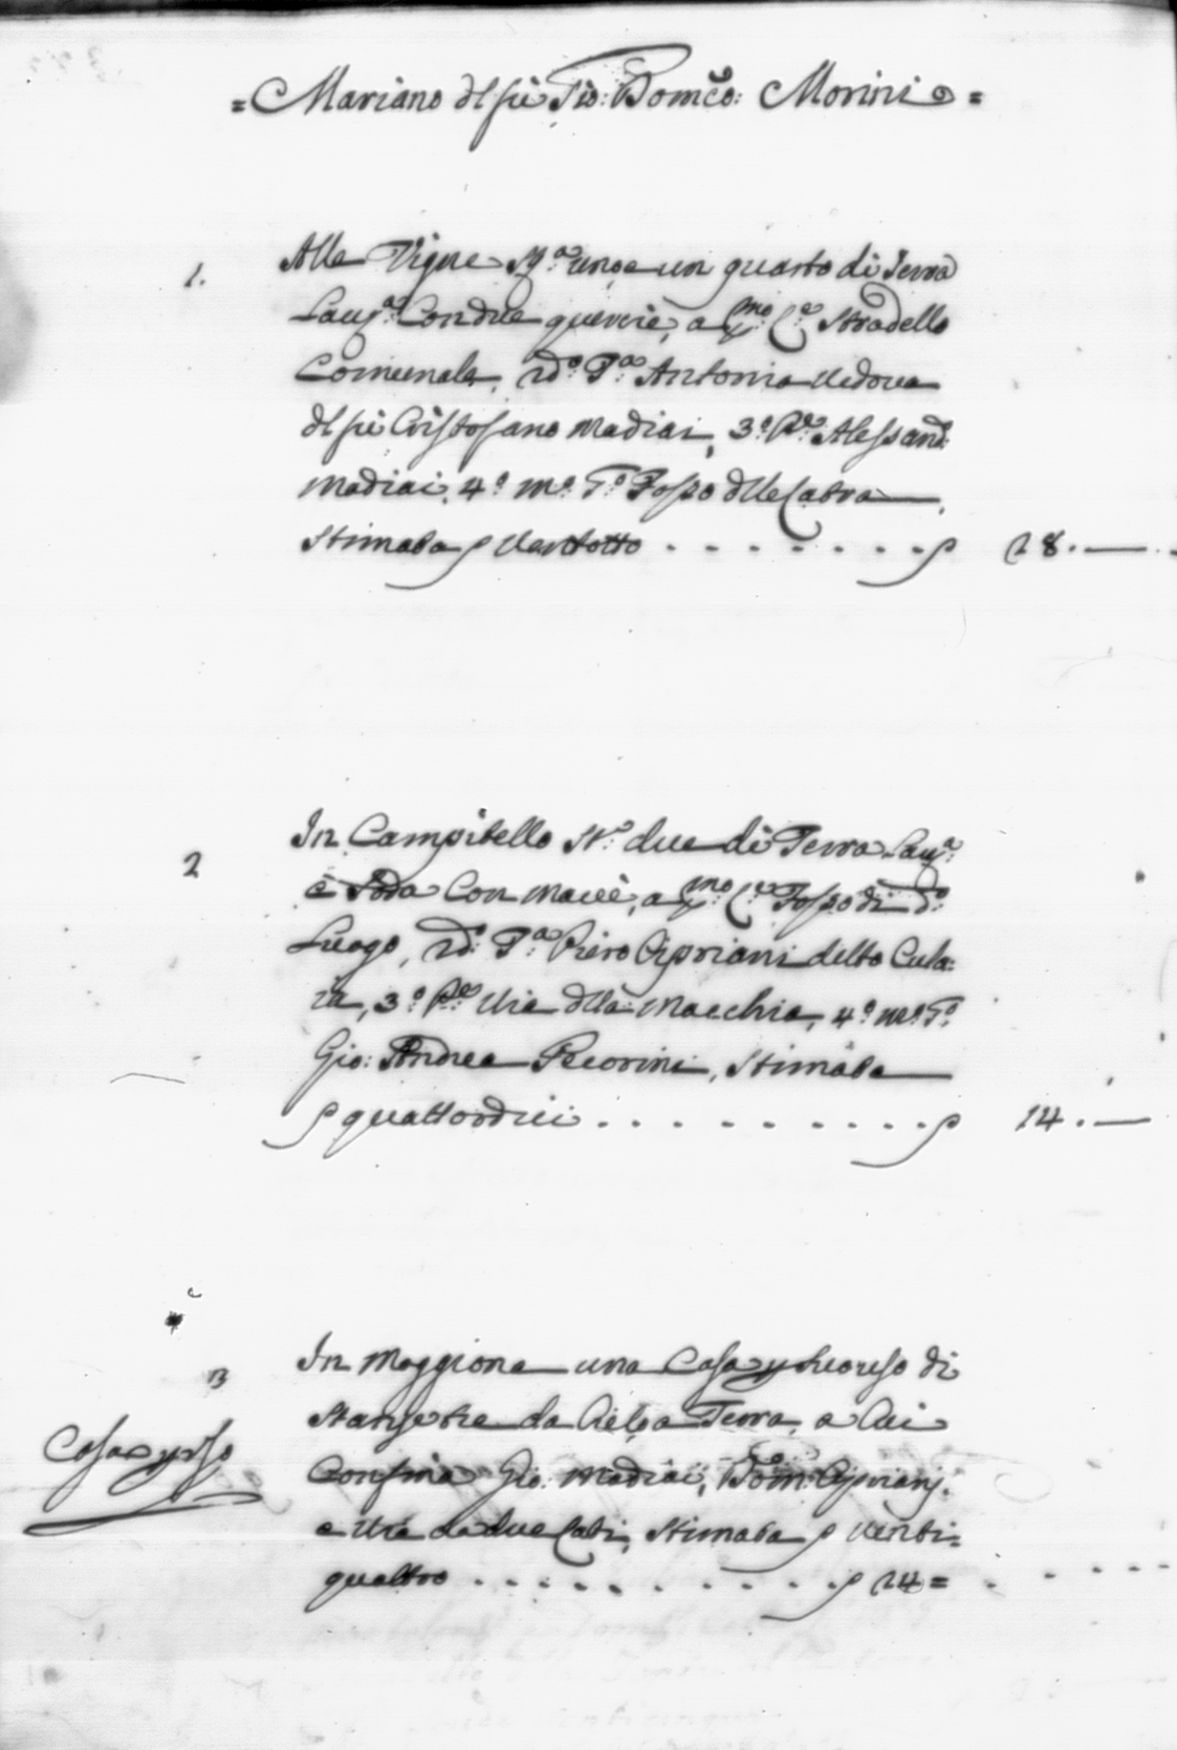 = Mariano dl sù Gio: Domco: Morini =
1. Alle Vigne St.ª uno e un quarto di Terra
Lauª Con due quercie, a pmo Cº Stradello
Comunale, 2dº Pª Antonia Vedova
dl sù Cristofano Madiai, 3º Pe Alessandº
Madiai, 4º Mº Tº Fosso dlle Catra
Stimata s Ventotto . . . . . . . s 28. —
2 In Campitello Stº due di Terra Lauª
e Soda Con Macie, a pmo Cº Fosso di dº
Luogo, 2dº Pª Piero Cipriani detto Cula:
3º Pe Via dlla Macchia, 4º Mº Tº
Gio: Andrea Pecorini, Stimata
s quattordici . . . . . . . . . s 14. —
3 In Moggiona una Casa p suo uso di
Stanze tre da Cielo a Terra, a Cui
Confina Gio: Madiai, Domº Cipriani,
e Via da due Lati, Stimata s Venti=
quattro . . . . . . . . . . s 24 = . . . . .
Casa p uso